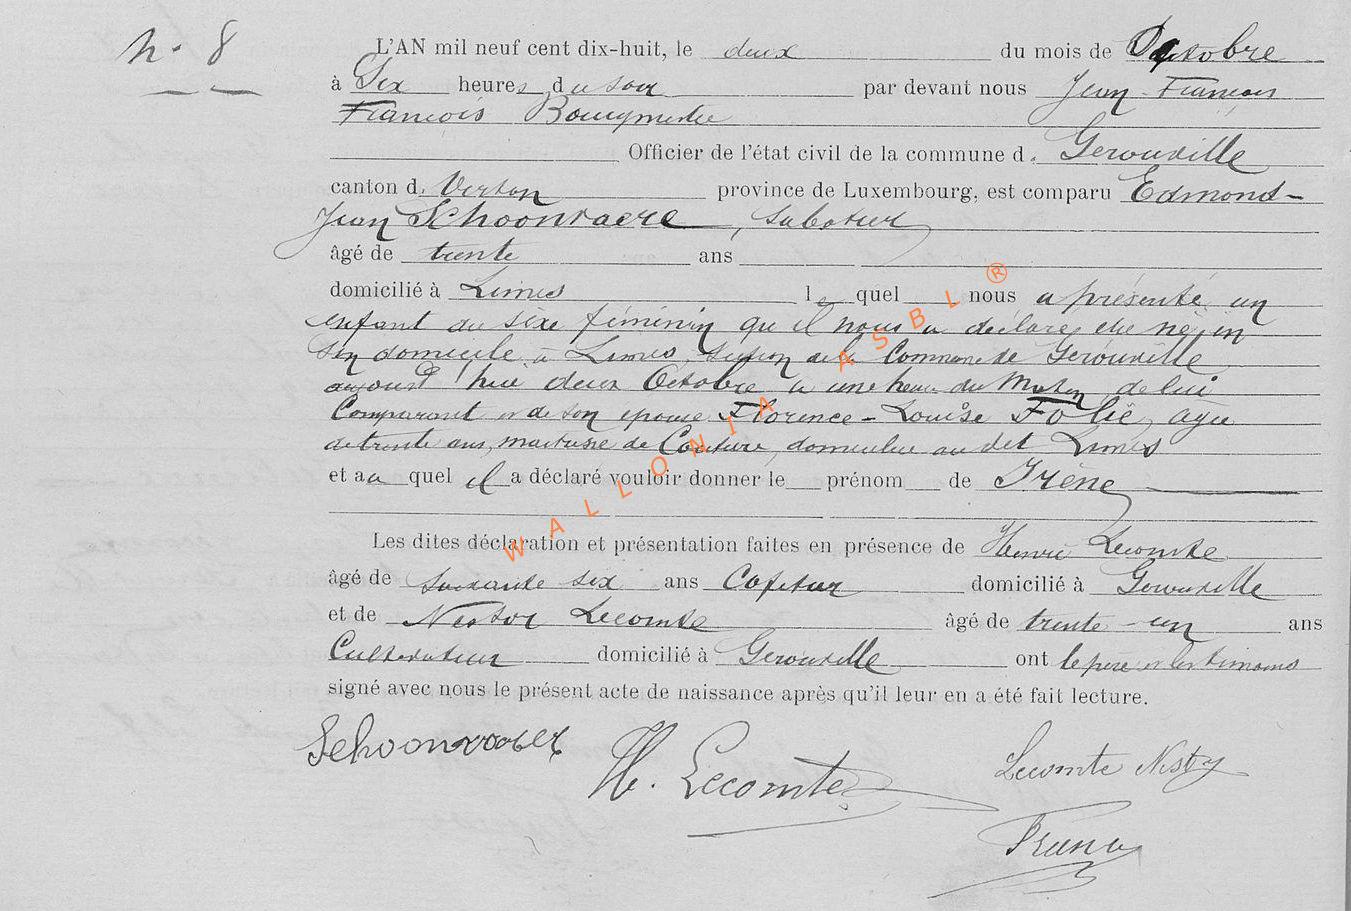 N. 8
L'AN mil neuf cent dix-huit, le deux du mois de Octobre
à Six heures du soir par devant nous Jean-François
François
Officier de l'état civil de la commune d. Gerouville
canton d. Virton province de Luxembourg, est comparu Edmond-
Jean Schoonvaere, sabotier
âgé de trente ans
domicilié à Limes lequel nous a présenté un
enfant du sexe féminin qu'il nous a déclaré être né en
son domicile à Limes, section de la Commune de Gerouville
aujourd'hui deux Octobre à une heure du Matin, de lui
Comparant et de son épouse Florence-Louise Folie, agée
de trente ans, maitresse de Couture, domiciliée au dit Limes
et au quel il a déclaré vouloir donner le prénom de Irène
Les dites déclaration et présentation faites en présence de Henri Lecomte
âgé de Soixante six ans domicilié à Gerouville
et de Nestor Lecomte âgé de trente-un ans
Cultivateur domicilié à Gerouville ont le père et les témoins
signé avec nous le présent acte de naissance après qu'il leur en a été fait lecture.
WALLONIA ASBL®
H. Lecomte
Lecomte Nestor